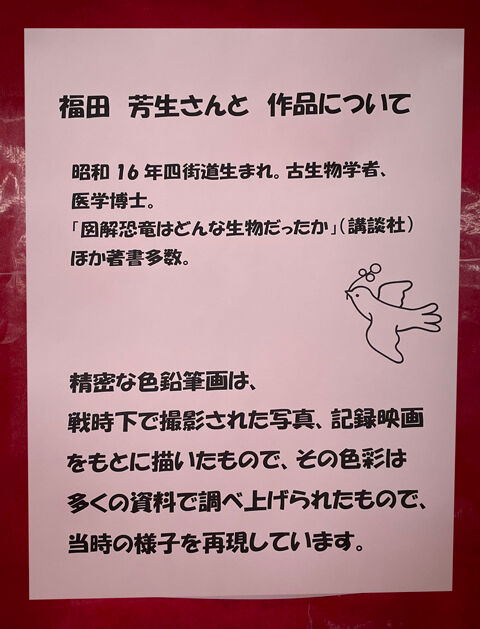 福田　芳生さんと　作品について
昭和 16 年四街道生まれ。古生物学者、
医学博士。
「図解恐竜はどんな生物だったか」（講談社）
ほか著書多数。
精密な色鉛筆画は、
戦時下で撮影された写真、記録映画
をもとに描いたもので、その色彩は
多くの資料で調べ上げられたもので、
当時の様子を再現しています。